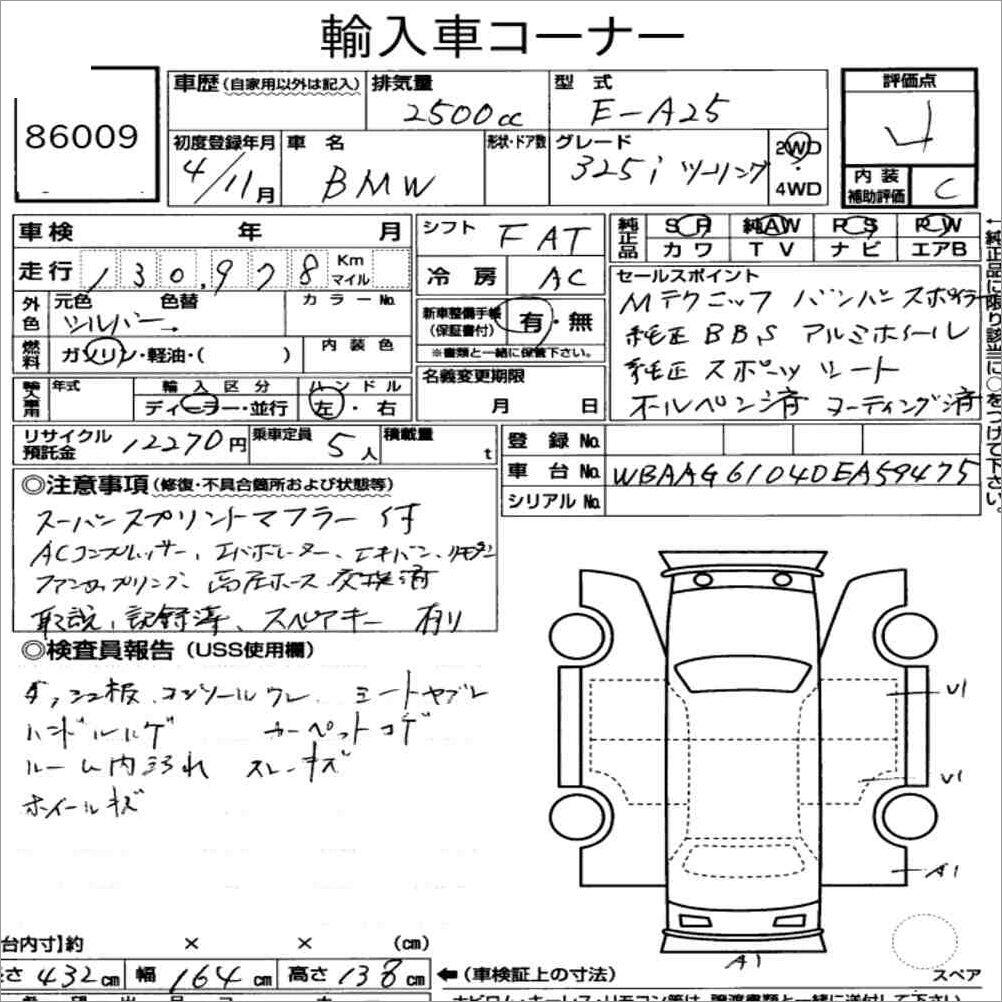 輸入車コーナー
86009
車歴(自家用以外は記入) 排気量 2500cc 型式 E-A25
評価点 4
初度登録年月 4/11月 車名 BMW 形状・ドア数 グレード 325i ツーリング 2WD・4WD
内装補助評価 C
車検 年 月
走行 130,978 Km マイル
シフト FAT
冷房 AC
純正品 SR 純AW PS PW
カワ TV ナビ エアB
外色 元色 色替 シルバー カラーNo.
燃料 ガソリン・軽油・( ) 内装色
新車整備手帳(保証書付) 有・無
※書類と一緒に保管下さい。
セールスポイント
Mテクニック バンパースポイラー
純正 BBS アルミホイール
純正 スポーツシート
オールペン済 コーティング済
←純正品に限り該当に○をつけて下さい。
輸入車用 年式 輸入区分 ディーラー・並行 ハンドル 左・右
名義変更期限 月 日
リサイクル預託金 12270円 乗車定員 5人 積載量 t
登録No.
車台No. WBAAG61040EA59475
シリアルNo.
◎注意事項(修復・不具合箇所および状態等)
スーパースプリントマフラー付
ACコンプレッサー、エバポレーター、エキパン、リキタン
ファンカップリング、高圧ホース 交換済
取説、記録簿、スペアキー 有り
◎検査員報告(USS使用欄)
ダッシュ板、コンソールワレ、シートヤブレ
ハンドルハゲ カーペットコゲ
ルーム内汚れ スレ・キズ
ホイールキズ
U1
U1
A1
A1
台内寸】約 × × (cm)
さ 432cm 幅 164cm 高さ 138cm ←(車検証上の寸法)
スペア